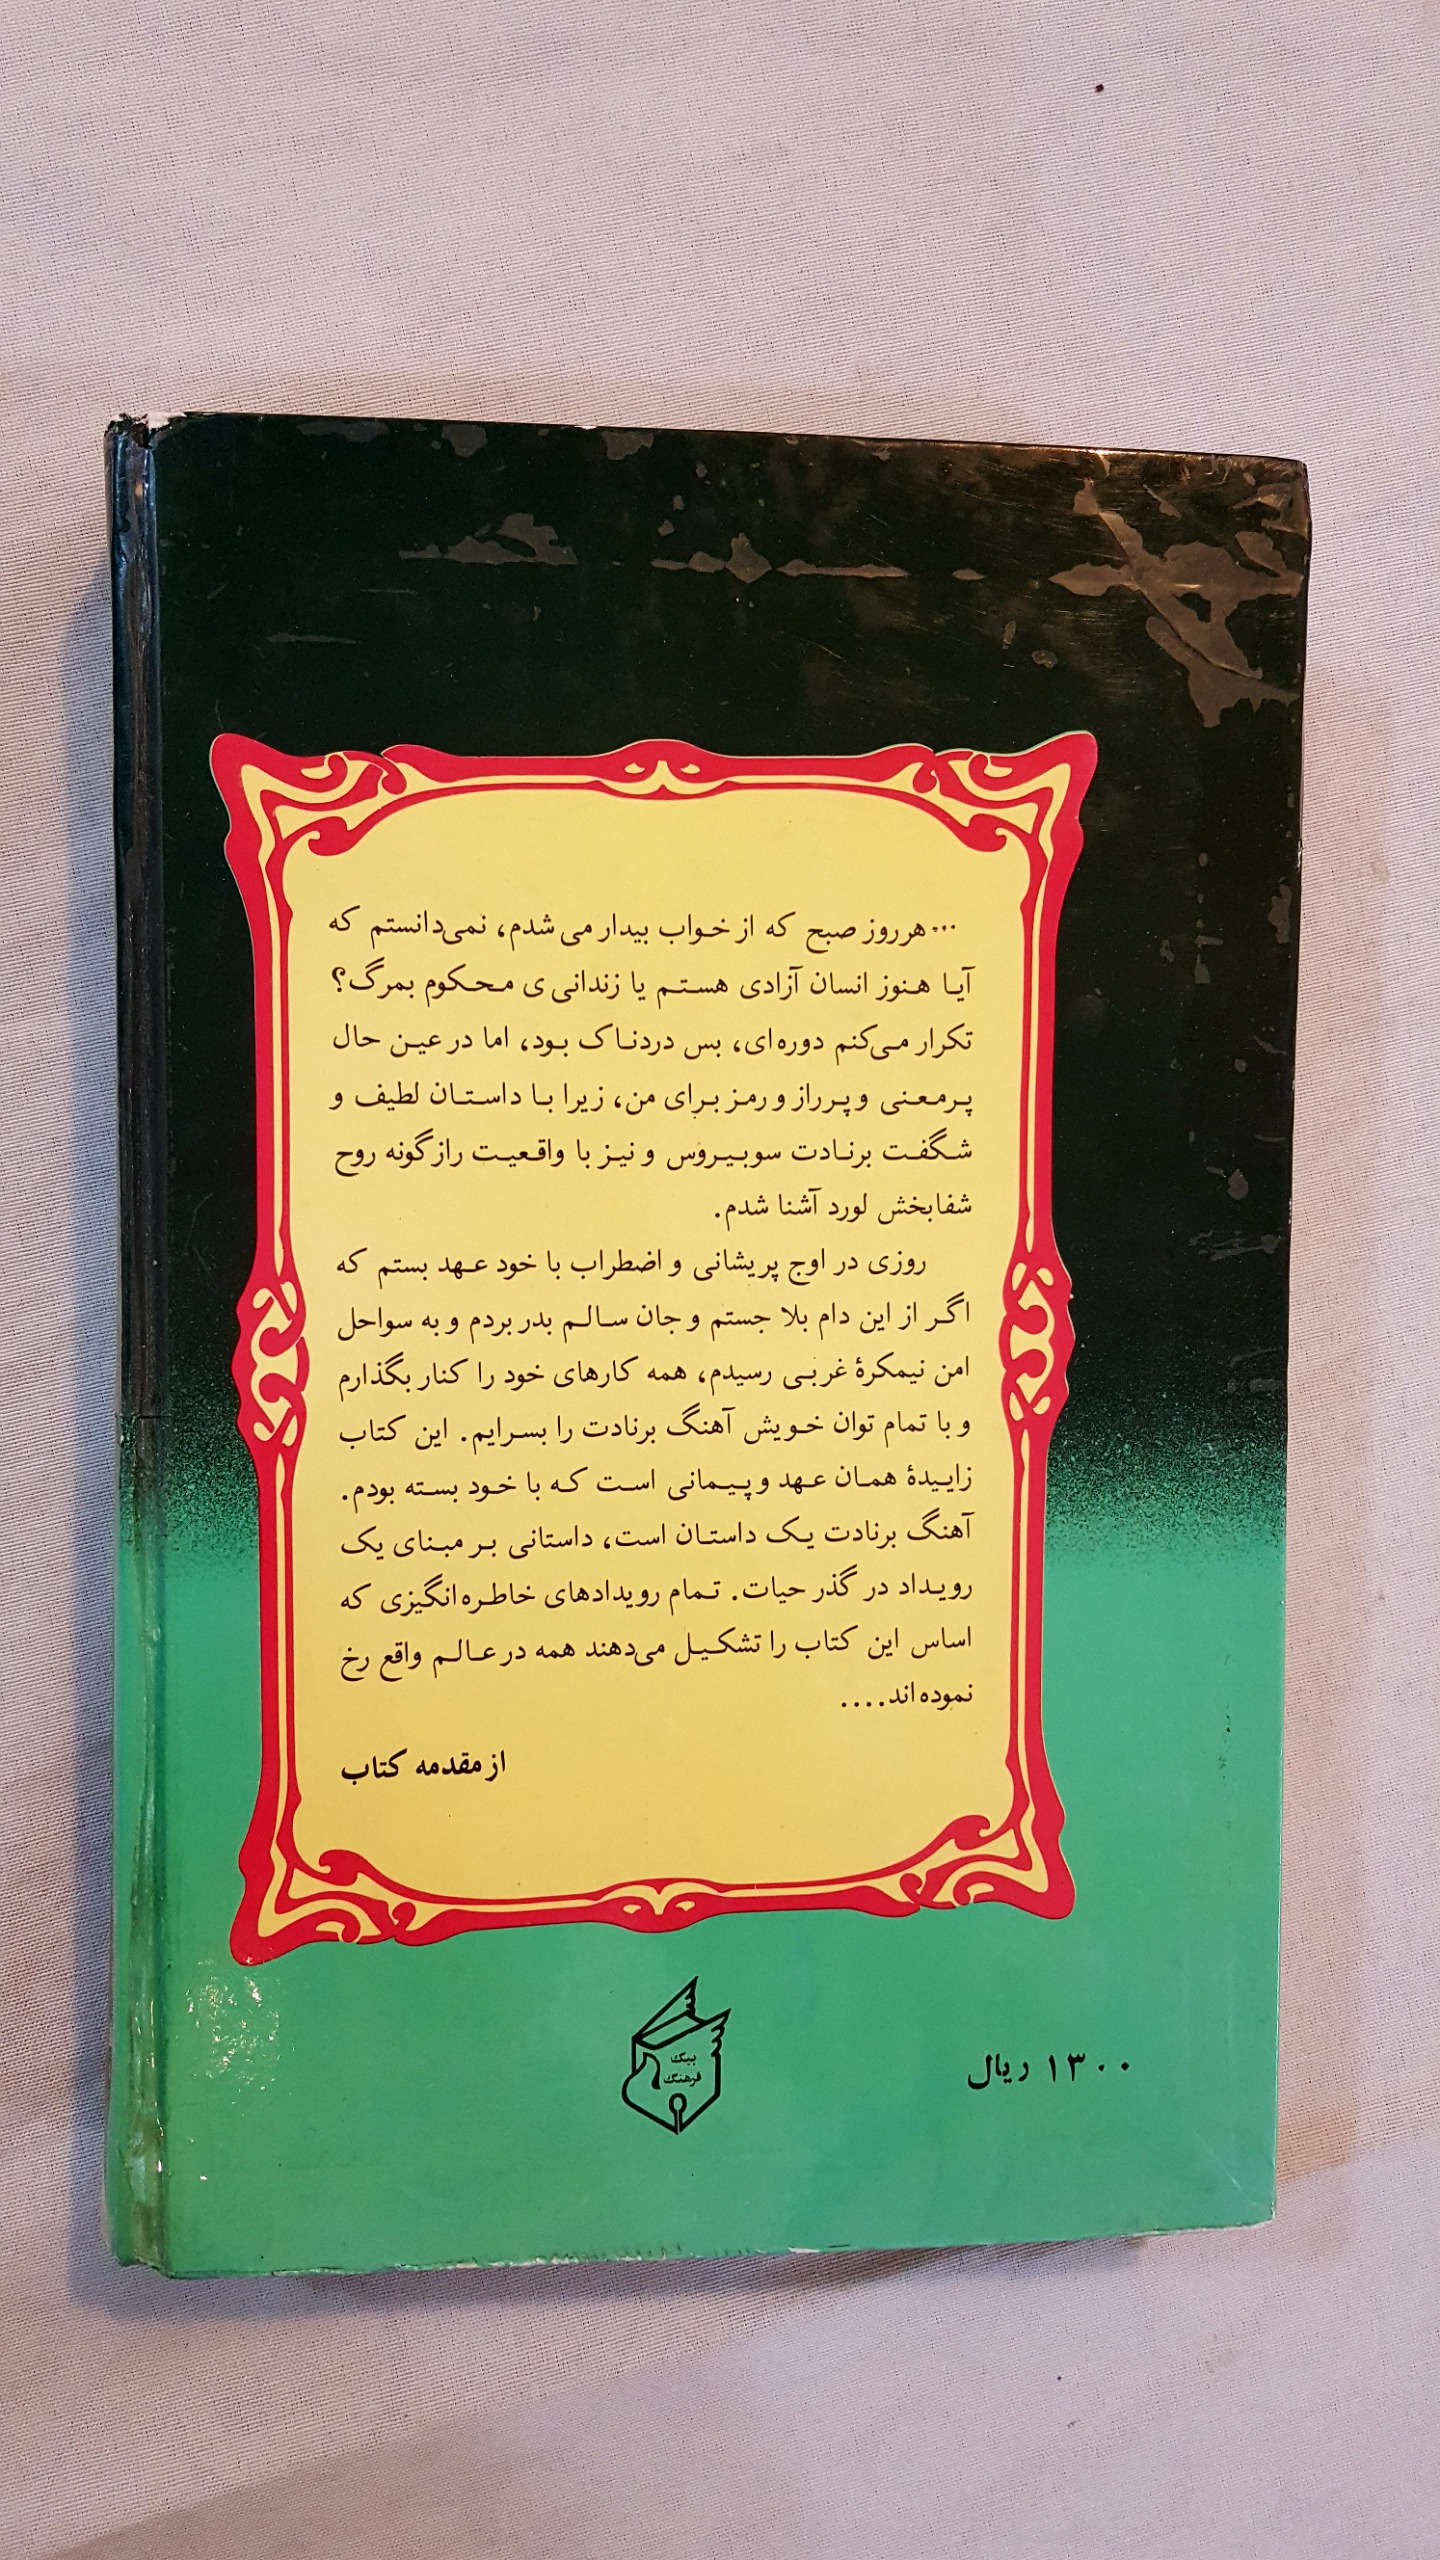 ...هر روز صبح که از خواب بیدار می‌شدم، نمی‌دانستم که
آیا هنوز انسان آزادی هستم یا زندانی ی محکوم بمرگ؟
تکرار می‌کنم دوره‌ای، بس دردناک بود، اما در عین حال
پرمعنی و پر راز و رمز برای من، زیرا با داستان لطیف و
شگفت برنادت سوبیروس و نیز با واقعیت رازگونه روح
شفابخش لورد آشنا شدم.
روزی در اوج پریشانی و اضطراب با خود عهد بستم که
اگر از این دام بلا جستم و جان سالم بدر بردم و به سواحل
امن نیمکرهٔ غربی رسیدم، همه کارهای خود را کنار بگذارم
و با تمام توان خویش آهنگ برنادت را بسرایم. این کتاب
زاییدهٔ همان عهد و پیمانی است که با خود بسته بودم.
آهنگ برنادت یک داستان است، داستانی بر مبنای یک
رویداد در گذر حیات. تمام رویدادهای خاطره‌انگیزی که
اساس این کتاب را تشکیل می‌دهند همه در عالم واقع رخ
نموده‌اند....
از مقدمه کتاب
پیک
فرهنگ
۱۳۰۰ ریال